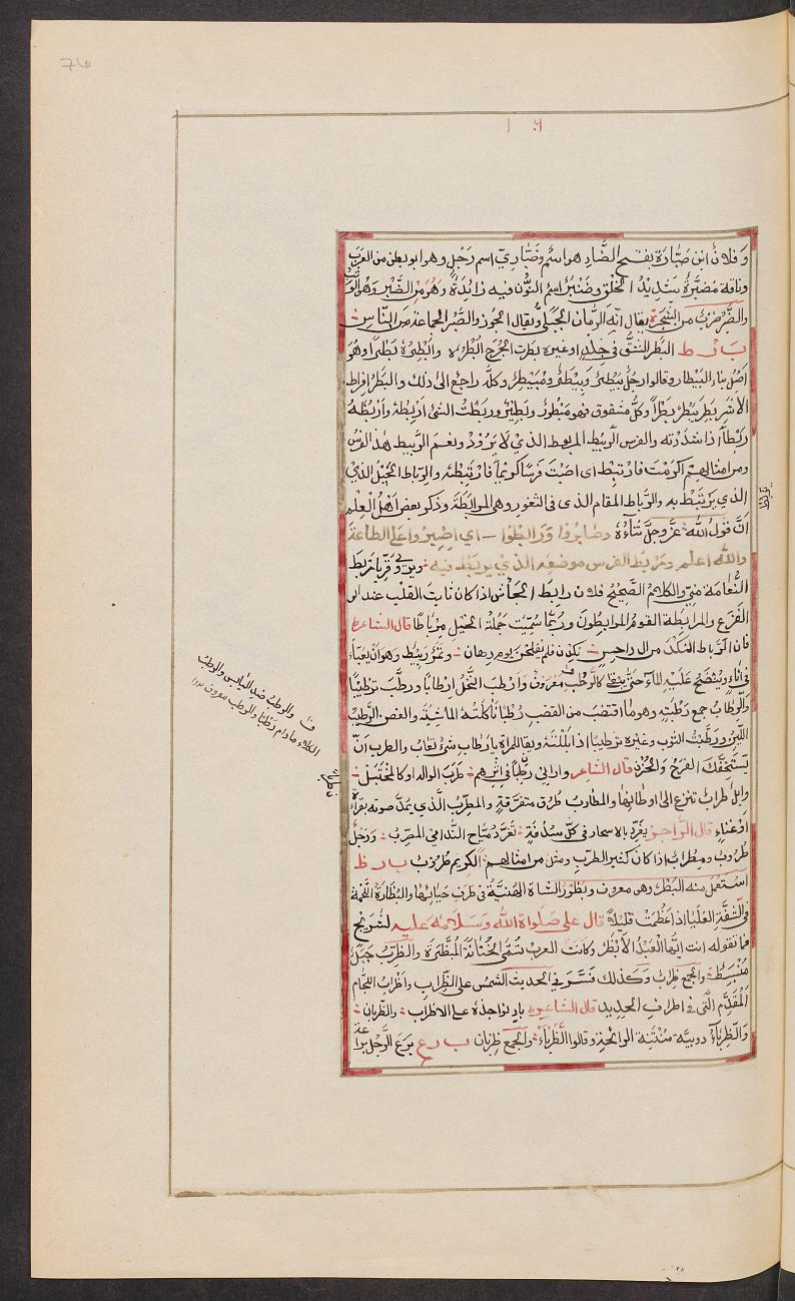 وفلان ابن صبارة بفتح الضاد هو اسم وضباري اسم رجل وهو ابو بطن من العرب
وناقة مضبرة شديد الخلق وضنبر اسم النون فيه زائدة وهو من الضبر وهو
والضبر ضرب من الشجرة يقال انه الرمان الجبلي ويقال الجوز والضبر الجماعة من الناس
ب ر ط البطر الشق في جلد او غيره بطرت الجرح ابطره والبطير وهو
اصل بناء البيطار وقالوا رجل بيطر وبيطر ومبيطر وكله راجع الى ذلك والبطر افراط
الاشر بطر يبطر بطرا وكل مشقوق فهو مبطور وبطير وربطت الشئ اربطه واربطه
ربطا اذا شددته والفرس الربيط المربوط الذي لا يرود ونعم الربيط هذا الفرس
ومن امثالهم اكرمت فارتبط اى اصبت فرسا كريما فارتبطه والرباط الحبل الذي
الذي يرتبط به والرباط المقام الذى فى الثغور وهى المرابطة وذكر بعض اهل العلم
ان قول الله عز وجل ثناؤه وصابروا ورابطوا اي اصبروا على الطاعة
والله اعلم ومربط الفرس موضعه الذي يربط فيه
النعامة مني والكلام الصحيح فلان رابط الجاش اذا كان ثابت القلب عند
الفزع والمرابطة القوم المرابطون وربما سميت جملة الخيل مرباطا قال الشاعر
فان الرباط النكد من ال داحس يكون فلم يفلحن يوم رهان وتمر ربيط وهو ان يعبا
في اناء وينضح عليه الماء حتى يبقى كالرطب معروف وارطب النخل ارطابا ورطب ترطيبا
والرطاب جمع رطبة وهو ما اقتضب من القضب رطبا تاكله الماشية والغصن الرطيب
اللين ورطبت الثوب وغيره ترطيبا اذا بللته ويقال للمراة يا رطاب شئ تعاب والطرب ان
يستخفك الفرح والحزن قال الشاعر واراني طربا في اثرهم طرب الواله او كالمختبل
وابل طراب تنزع الى اوطانها والمطارب طرق متفرقة والمطرب الذي يمد صوته بقراة
او غناء قال الراجز يغرد بالاسحار في كل سدفة تغرد مياح الندامى المطرب ورجل
طروب ومطراب اذا كان كثير الطرب ومثل من امثالهم الكريم طروب ب ر ظ
استعمل منه البظر وهو معروف وبظور الشاة الهنية في طرف حيائها والبظارة اللحمة
في الشفة العليا اذا عظمت قليلا قال على صلواة الله وسلامه عليه لشريح
فما تقوله انت ايها العبد الابظر وكانت العرب تسمى الختانة المبظرة والظرب جبل
منبسط والجمع ظراب وكذلك فسر في الحديث الشمس على الظراب واظراب اللجام
المقدم التى في اطراف الحديد قال الشاعر باد نواجذه على الاظراب والظربان
والظرباء دويبة منتنة الرائحة وقالوا الظرباء والجمع ظربان ب ر ع برع الرجل براعة
والرطب ضد اليابس والرطب
الكلاء مادام رطبا والرطب معروف